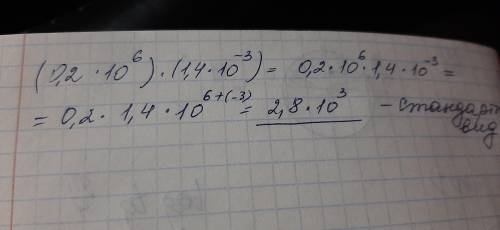 (0,2 · 10⁶) · (1,4 · 10⁻³) = 0,2 · 10⁶ · 1,4 · 10⁻³ =
= 0,2 · 1,4 · 10⁶⁺⁽⁻³⁾ = 2,8 · 10³ – стандарт
вид